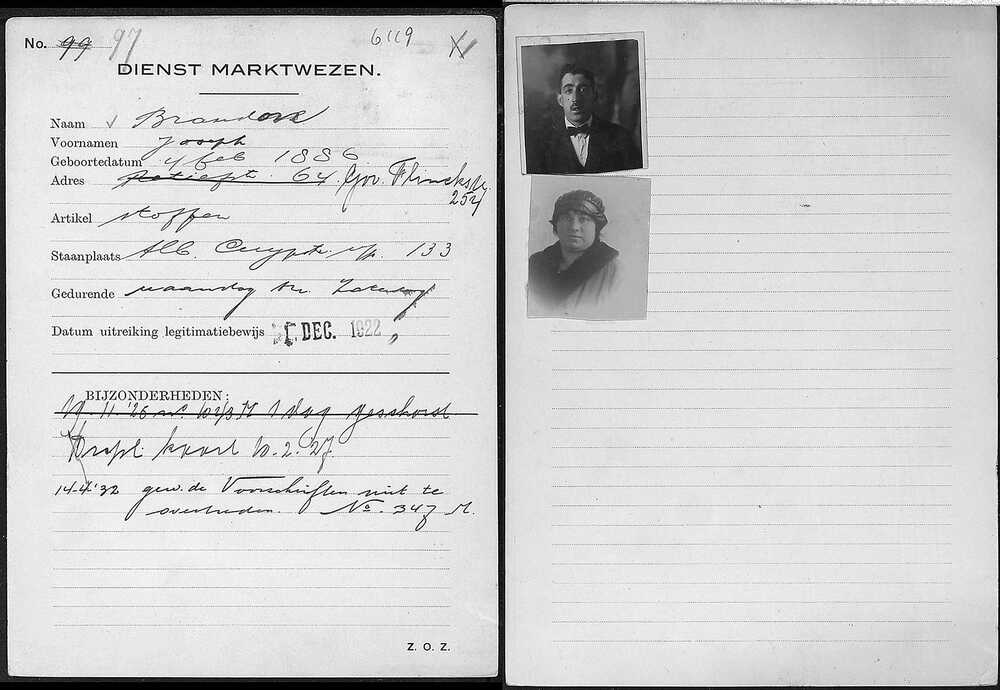 No. 99 97
6119
DIENST MARKTWEZEN.
Naam Brandon
Voornamen Joseph
Geboortedatum 4 feb 1886
Adres 64 Gov. Flinckstr.
254
Artikel stoffen
Staanplaats Alb. Cuypstr. 133
Gedurende maandag t/m Zaterdag
Datum uitreiking legitimatiebewijs DEC. 1922
BIJZONDERHEDEN:
'26 1 dag geschorst
Dupl. kaart 10.2.'27
14-4-'32 gew. de Voorschriften niet te
overtreden. No. 347 M.
Z. O. Z.